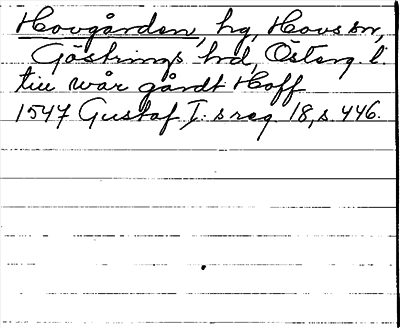 Hovgården, hg, Hovs sn,
Göstrings hd, Österg. l.
till wår gårdt Hoff
1547 Gustaf I:s reg 18, s 446.